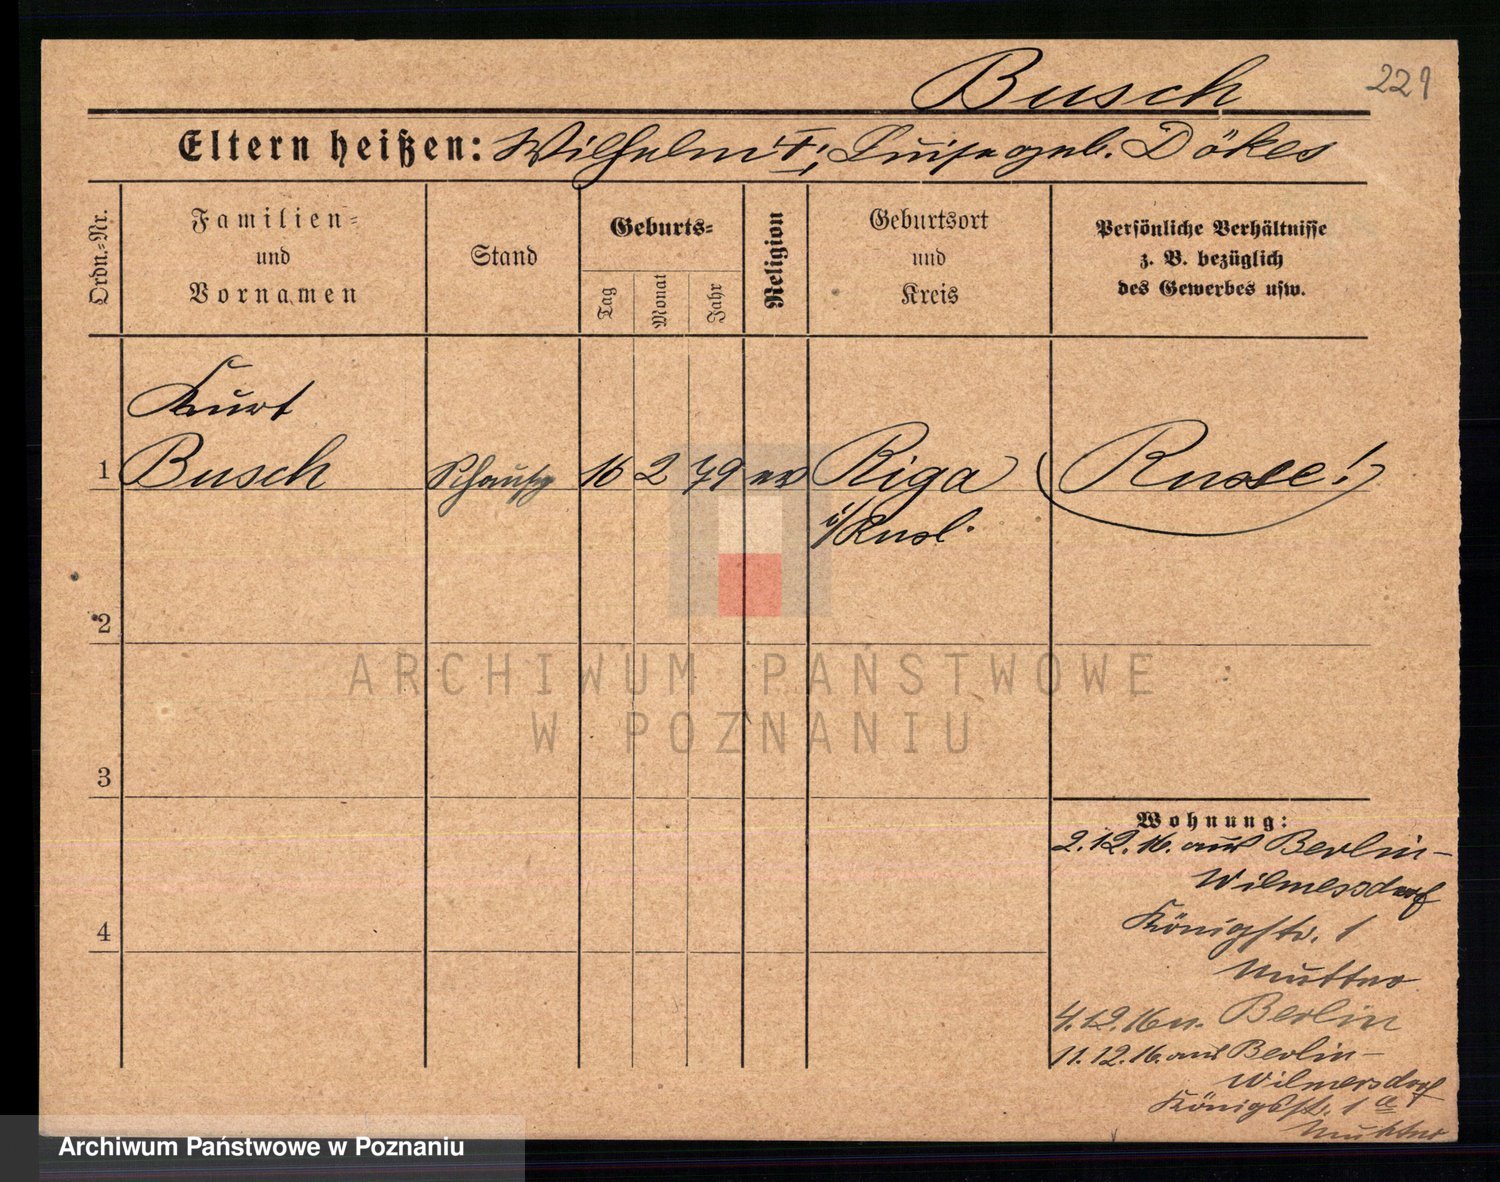 Busch 221
Eltern heißen: Wilhelm †; Luise geb. Dökes
Ordn.-Nr.
Familien-
und
Vornamen
Stand
Geburts-
Tag
Monat
Jahr
Religion
Geburtsort
und
Kreis
Persönliche Verhältnisse
z. B. bezüglich
des Gewerbes usw.
Kurt
1 Busch Schausp 16 2 79 ev Riga (Russe!)
i/Russl.
2
3
4
Wohnung:
2.12.16. aus Berlin-
Wilmersdorf
Königstr. 1
Mutter
4.12.16 n. Berlin
11.12.16. aus Berlin-
Wilmersdorf
Königstr. 1 a
Mutter
ARCHIWUM PAŃSTWOWE
W POZNANIU
Archiwum Państwowe w Poznaniu